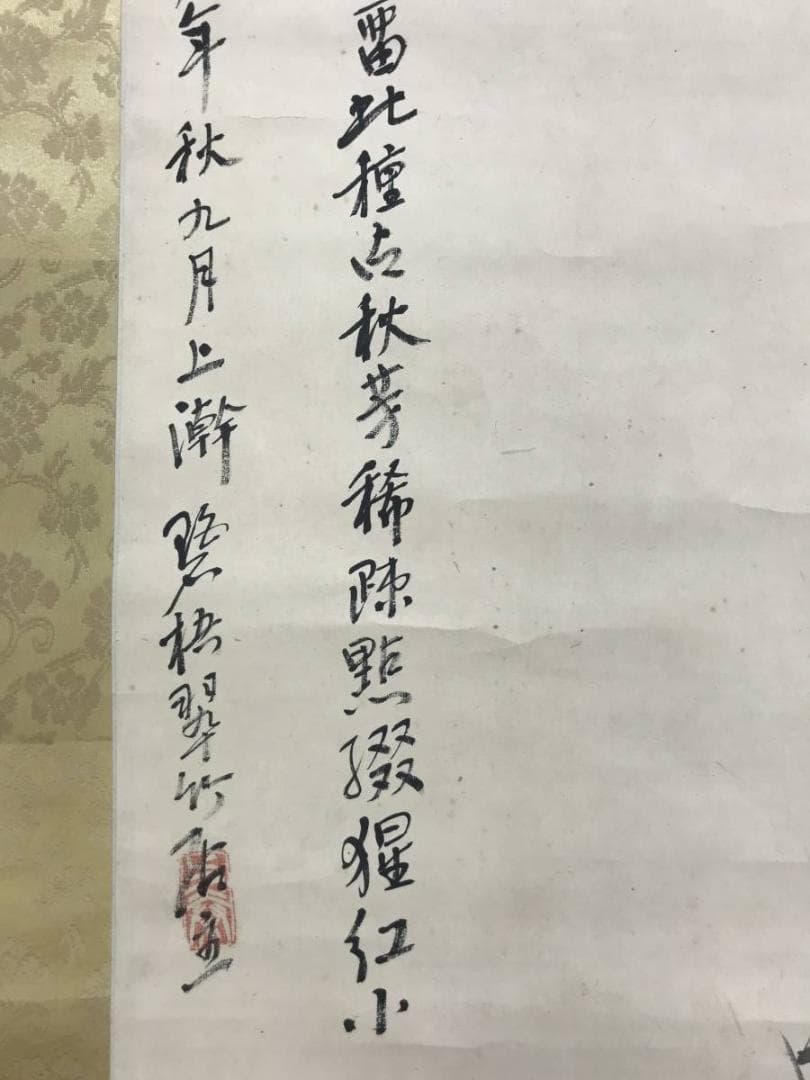 留此種占秋芳稀疎點綴猩紅小
年秋九月上澣碧梧翠竹居主